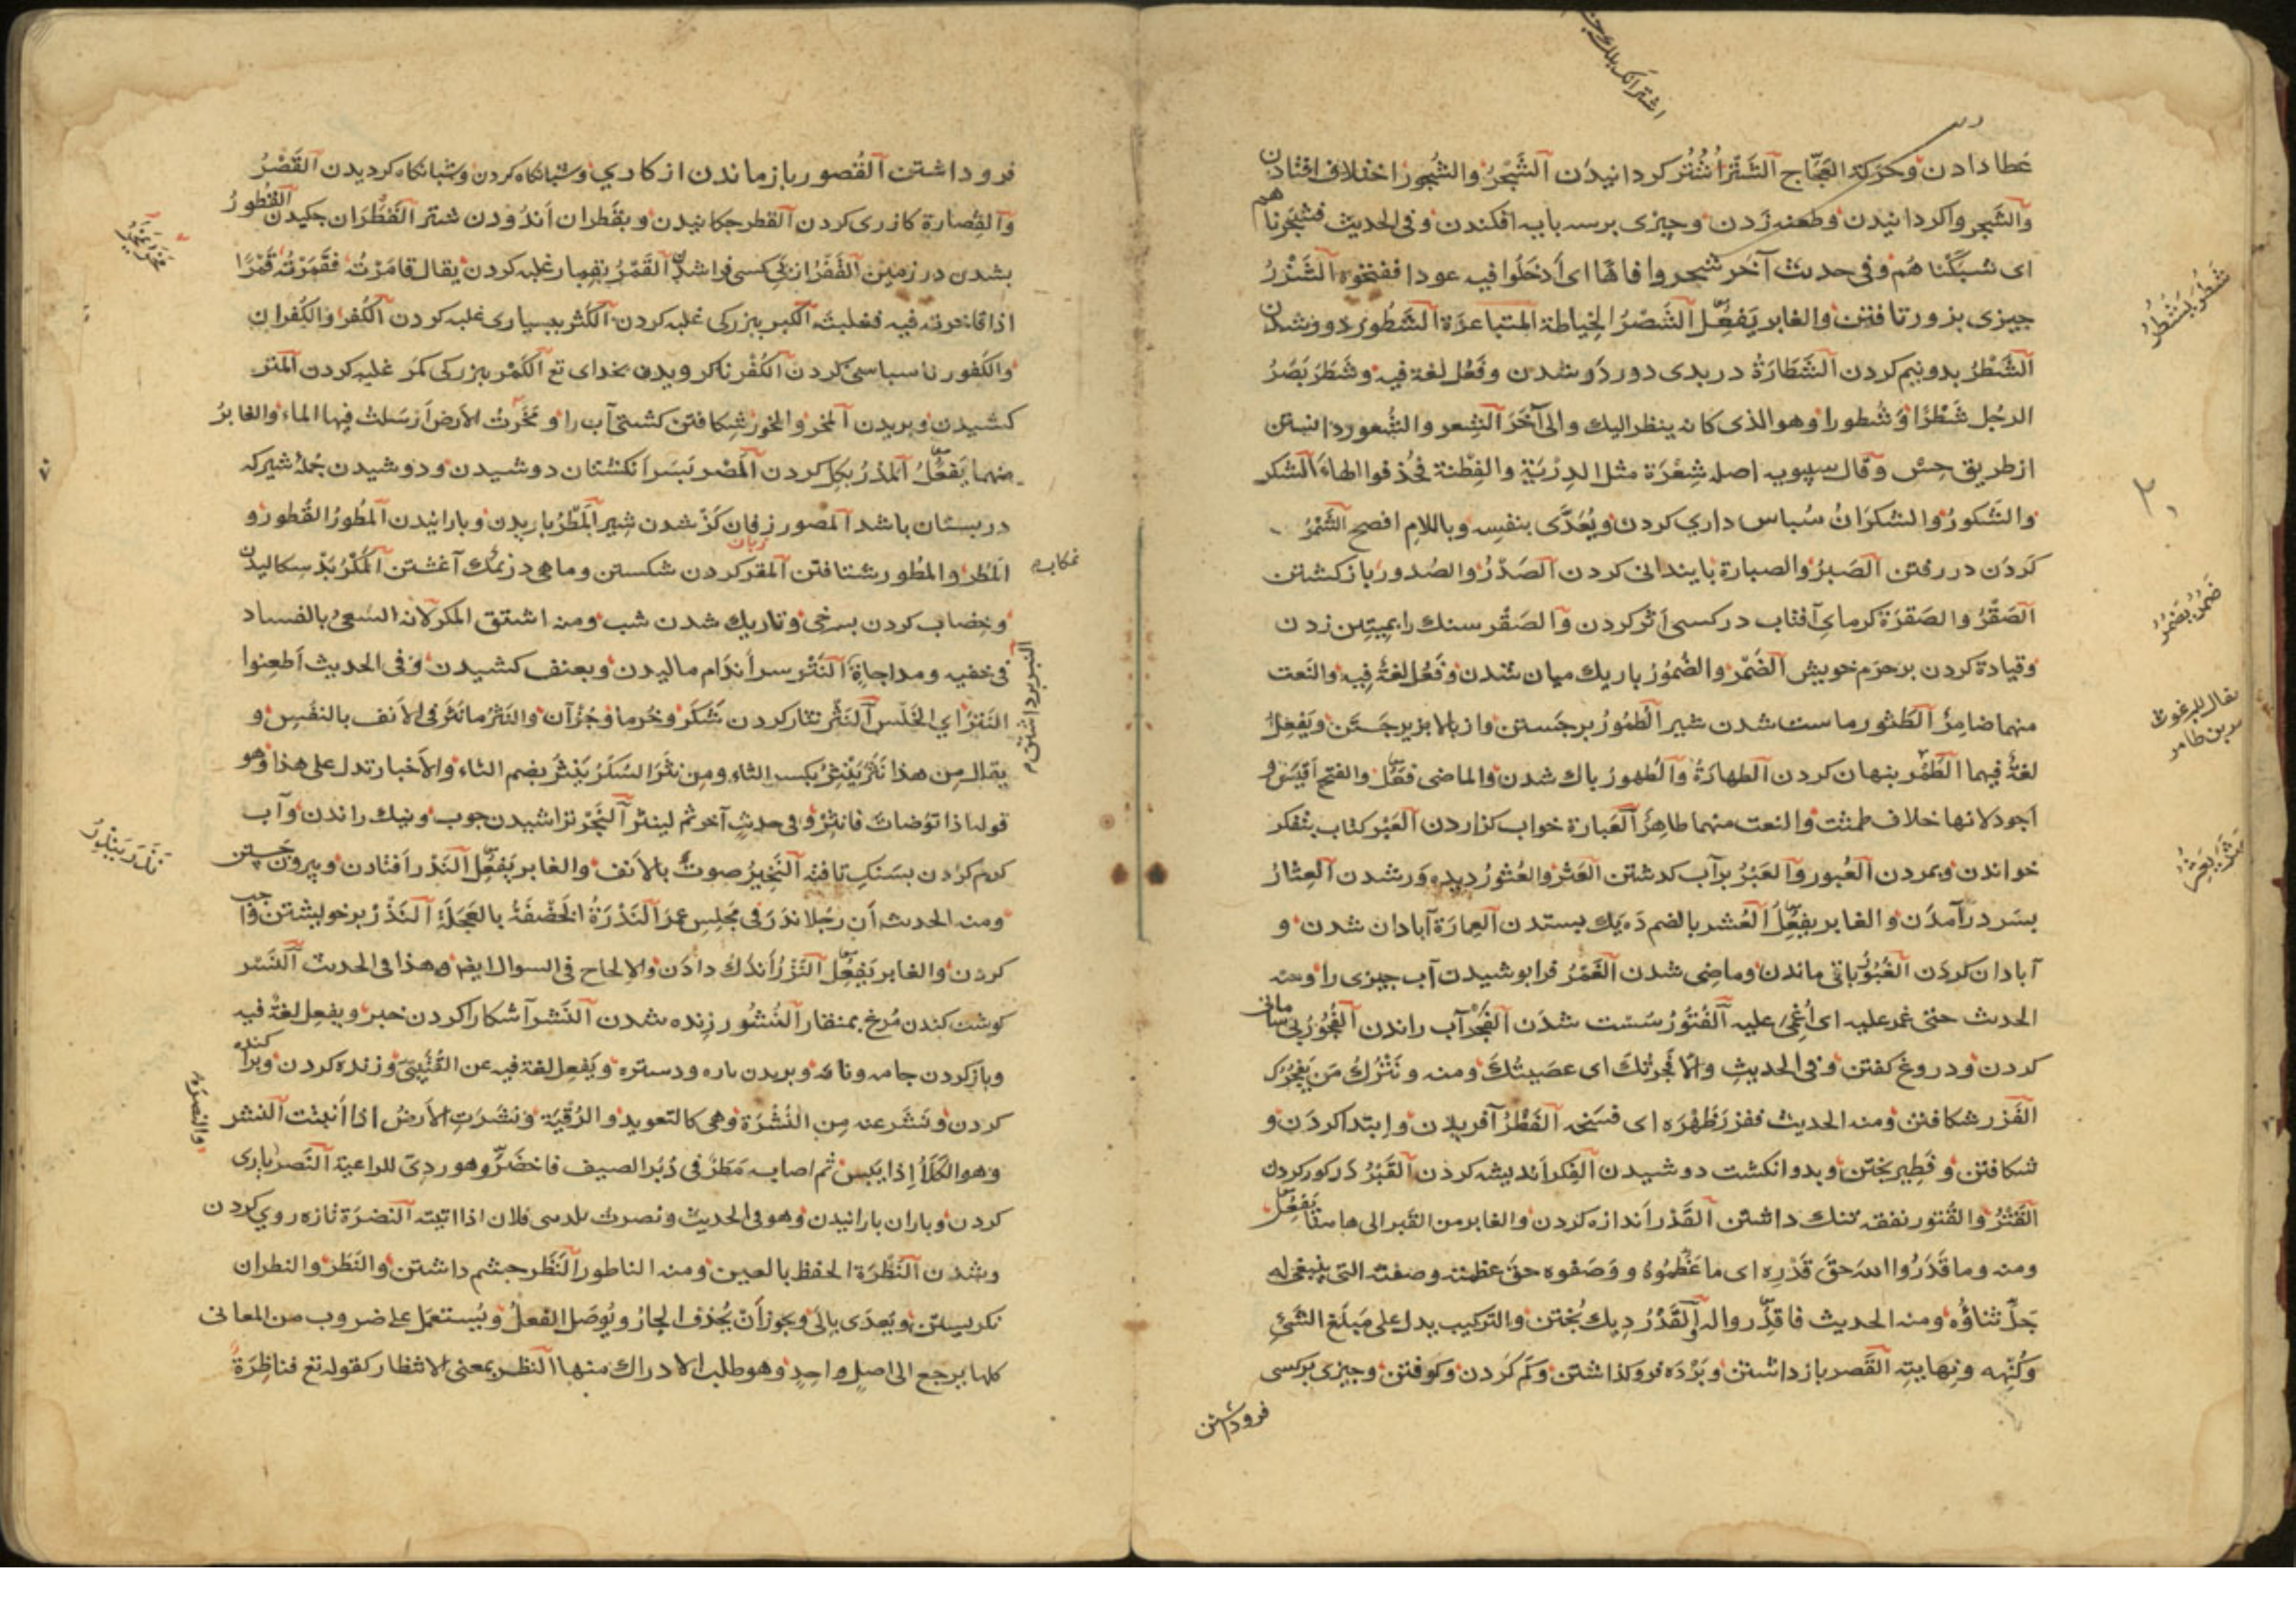 عطا دادن وحركة العجّاج الشَّتْرُ شُتُر كردانيدن الشَّجْرُ والشُّجور اختلاف افتادن
والشجر واكردانيدن وطعنه زدن وچيزى برسه بايه افكندن وفى الحديث فشجرناهم
اى شبّكناهم وفى حديث آخر شجروا فاها اى أدخلوا فيه عودا ففتحوه الشَّزْرُ
چيزى بزور تافتن والغابر يَفعِل الشَّصْرُ الخياطة المتباعدة الشُّطور دور شدن
الشَّطْرُ بدونيم كردن الشَّطَارَةُ در بدى دور دو شدن وفَعُل لغة فيه وشَطَرَ بَصَرُ
الرجُل شَطْرًا وشُطورا وهو الذى كانه ينظر اليك والى آخَرَ الشِعر والشُعور دانستن
از طريق حِسّ وقال سيبويه اصله شِعْرَة مثل الدِرْبَة والفِطْنة فحُذفوا الهاء الشكر
والشكورُ والشكرَانُ سُباس داري كردن ويُعَدَّى بنفسِه وباللامِ افصح الشَّمْرُ
كردَن در رفتن الصَبرُ والصبارة بايندانى كردن الصَدْرُ والصُدور بازكشتن
الصَقْرُ والصَقرَة كرماىِ آفتاب در كسى اَثر كردن والصَقْر سنك را بميتين زدن
وقيادة كردن بر حرَم خويش الضَمْر والضُمُورُ باريك ميان شدن وفَعُل لغة فِيه والنعت
منهما ضامِرٌ الطَثور ماست شدن شير الطُمُورُ برجَستن واز بالا بزير جَستَن ويَفعِلُ
لغةٌ فيهما الطَمْر بنهان كردن الطهارَةُ والطُهورُ باك شدن والماضى فَعُل والفتح أقيَسُ و
اجود لانها خلاف طمثت والنعت منهما طاهِرٌ العَبارة خواب كزاردن العَبْر كتاب بتفكر
خواندن وبمردن العُبور والعَبْرُ برآب كدشتن العَثْر والعُثورُ ديده وَر شدن العِثارُ
بسَر درآمدَن والغابر يفعُل العُشر بالضم دَه يك بستدن العِمارَة آبادان شدن و
آبادان كردَن الغُبُورُ باقى ماندن وماضِى شدن الغَمْرُ فرا بوشيدن آب چيزى را ومنه
الحدث حتى غمر عليه اى اُغْمِىَ عليه الفُتُورُ سُسْت شدَن الفَجْرُ آب راندن الفُجُورُ بى سامانى
كردن ودروغ كفتن وفى الحديثِ والّا فَجرتُكَ اى عصَيتُكَ ومنه ونَتْرُكُ مَن يَفجُرُك
الفَزر شكافتن ومنه الحديث ففزر ظَهْرَه اى فسَخَه الفَطْرُ آفريدن وابتدا كردَن و
شكافتن وفَطير پختن وبدو انكشت دوشيدن الفِكر اَنديشه كردَن القَبْرُ دَر كور كردن
القَتْرُ والقُتور نفقه تنك داشتن القَدْر اَندازه كردن والغابر من القبر الى هاهنا يَفعِل
ومنه وما قَدَرُوا اللهَ حقَ قَدْرِه اى ما عَظَّمُوهُ ووَصَفوه حقَ عظمته وصفته التى ينبغى له
جَلَّ ثناؤُه ومنه الحديث فاقدِروا له القَدْرُ ديك پُختن والتركيب يدل على مَبلَغ الشَئ
وكُنْهِه ونهايتِه القَصر باز داشتن وبَرْدَه فرو كذاشتن وكم كردن وكوفتن وچيزى بر كسى
فروداشتن
شَطَرَ يَشْطُرُ
ضَمُرَ يَضمُرُ
يقال للبرغوث
فرو داشتن القُصور باز ماندن از كاري وشبانكاه كردن وشبانكاه كرديدن القَصْرُ
والقُصارة كازرى كردن القطر چكانيدن وبقَطران اَندُودن شتر القَطَرَان چكيدن القُطُورُ
بشدن در زمين القَفَرُ از پى كسى فرا شدن القَمْرُ بقِمار غلبه كردن يقال قامَرْتُه فقَمَرْتُه قَمْرًا
اذا فاخرته فيه فغلبته الكبر ببزركى غلبه كردن الكَثر ببسيارى غلبه كردن الكُفر والكُفران
والكُفور ناسباسى كردن الكُفْر ناكرويدن بخداى تع الكَمْر ببزركى كمَر غلبه كردن المتر
كشيدن وبريدن المَخر والمُخور شِكافتن كشتى آب را ومَخَرْتُ الارضَ اَرسَلت فيها الماء والغابرُ
منهما يَفعُلُ المَدْرُ بكِل كردن المَصْر بسَر اَنكشتان دوشيدن ودوشيدن جُملهٔ شير كه
در بستان باشد المصور زفان كَزْ شدن شير المَطْرُ باريدن وبارانيدن المُطُورُ القُطور و
المَطْر والمُطُور شتافتن المقر كردن شكستن وماهى در نمك آغشتن المَكْرُ بَدْ سكاليدن
وخِضاب كردن بسرخى وتاريك شدن شب ومنه اشتق المكر لانه السَعىُ بالفساد
فى خفيه ومداجاةٍ النَتْر سر اَندَام ماليدن وبعنف كشيدن وفى الحديث اَطعِنوا
النَتر اي الخَلَس النَثْر نثار كردن شَكَر وخُرما وجُزآن والنَثْرُ ما نَثَر فى الاَنف بالنفَسِ و
يقال مِن هذا نَثَرَ يَنْثِرُ بكسر الثاء ومِن نثَرَ السُكَرَ يَنْثُر بضم الثاء والاَخبار تدل على هذا وهو
قوله اذا توَضات فانثِرْ وفى حديثٍ آخر ثم لينثر النَجْر تراشيدن چوب ونيك راندن وآب
كرم كردن بسَنكِ تافته النَخيرُ صوت بالاَنف والغابر يَفعُل النَدْر اَفتادن وبيرون جستن
ومنه الحديث اَن رجُلا ندَرَ فى مَجلِسِ عمَرَ النَدْرَةُ الخَضْفَةُ بالعَجَلَة النَذْرُ بر خويشتن واجب
كردن والغابر يَفعِل النَزْرُ اَندَك دادَن والالحاح فى السوال ايضا وهذا فى الحديث النَسْر
كوشت كندن مُرغ بمنقار النُشُور زِنده شدن النَشر آشكارا كردن خبر ويفعِل لغة فيه
وباز كردن جامه ونامه وبريدن باره ودستره ويَفعِل لغة فيه عن القُتَيْبِىّ وزنده كردن وبراكنده
كردن ونَشَر عنه مِن النُشْرَة وهى كالتعويد والرُقيَة ونَشَرَتِ الاَرضُ اذا اَنبتت النشر
وهو الكَلَأُ اِذا يَبِس ثم اصابه مَطَرٌ فى دُبُر الصيف فاخضَرّ وهو ردِىّ للراعية النَصر يارى
كردن وباران بارانيدن وهو فى الحديث ونصرت بلد بنى فلان اذا اتيته النَضرَة تازه روي كردن
وشدن النَظرَة الحفظ بالعين ومنه الناطور النَظَر چشم داشتن والنَظَر والنظران
نكريستن ويُعدَى بالى ويجوز اَن يُحذف الجارُ ويُوصَل الفعلُ ويُستعمَل على ضروب من المعانى
كلها يرجع الى اصلٍ واحِدٍ وهو طلب الادراك منها النظر بمعنى الانتظار كقوله تع فناظِرَةٌ
نمكابه
زبان
النبر برداشتن
نَدَرَ يَنْدُرُ
والنصرَة